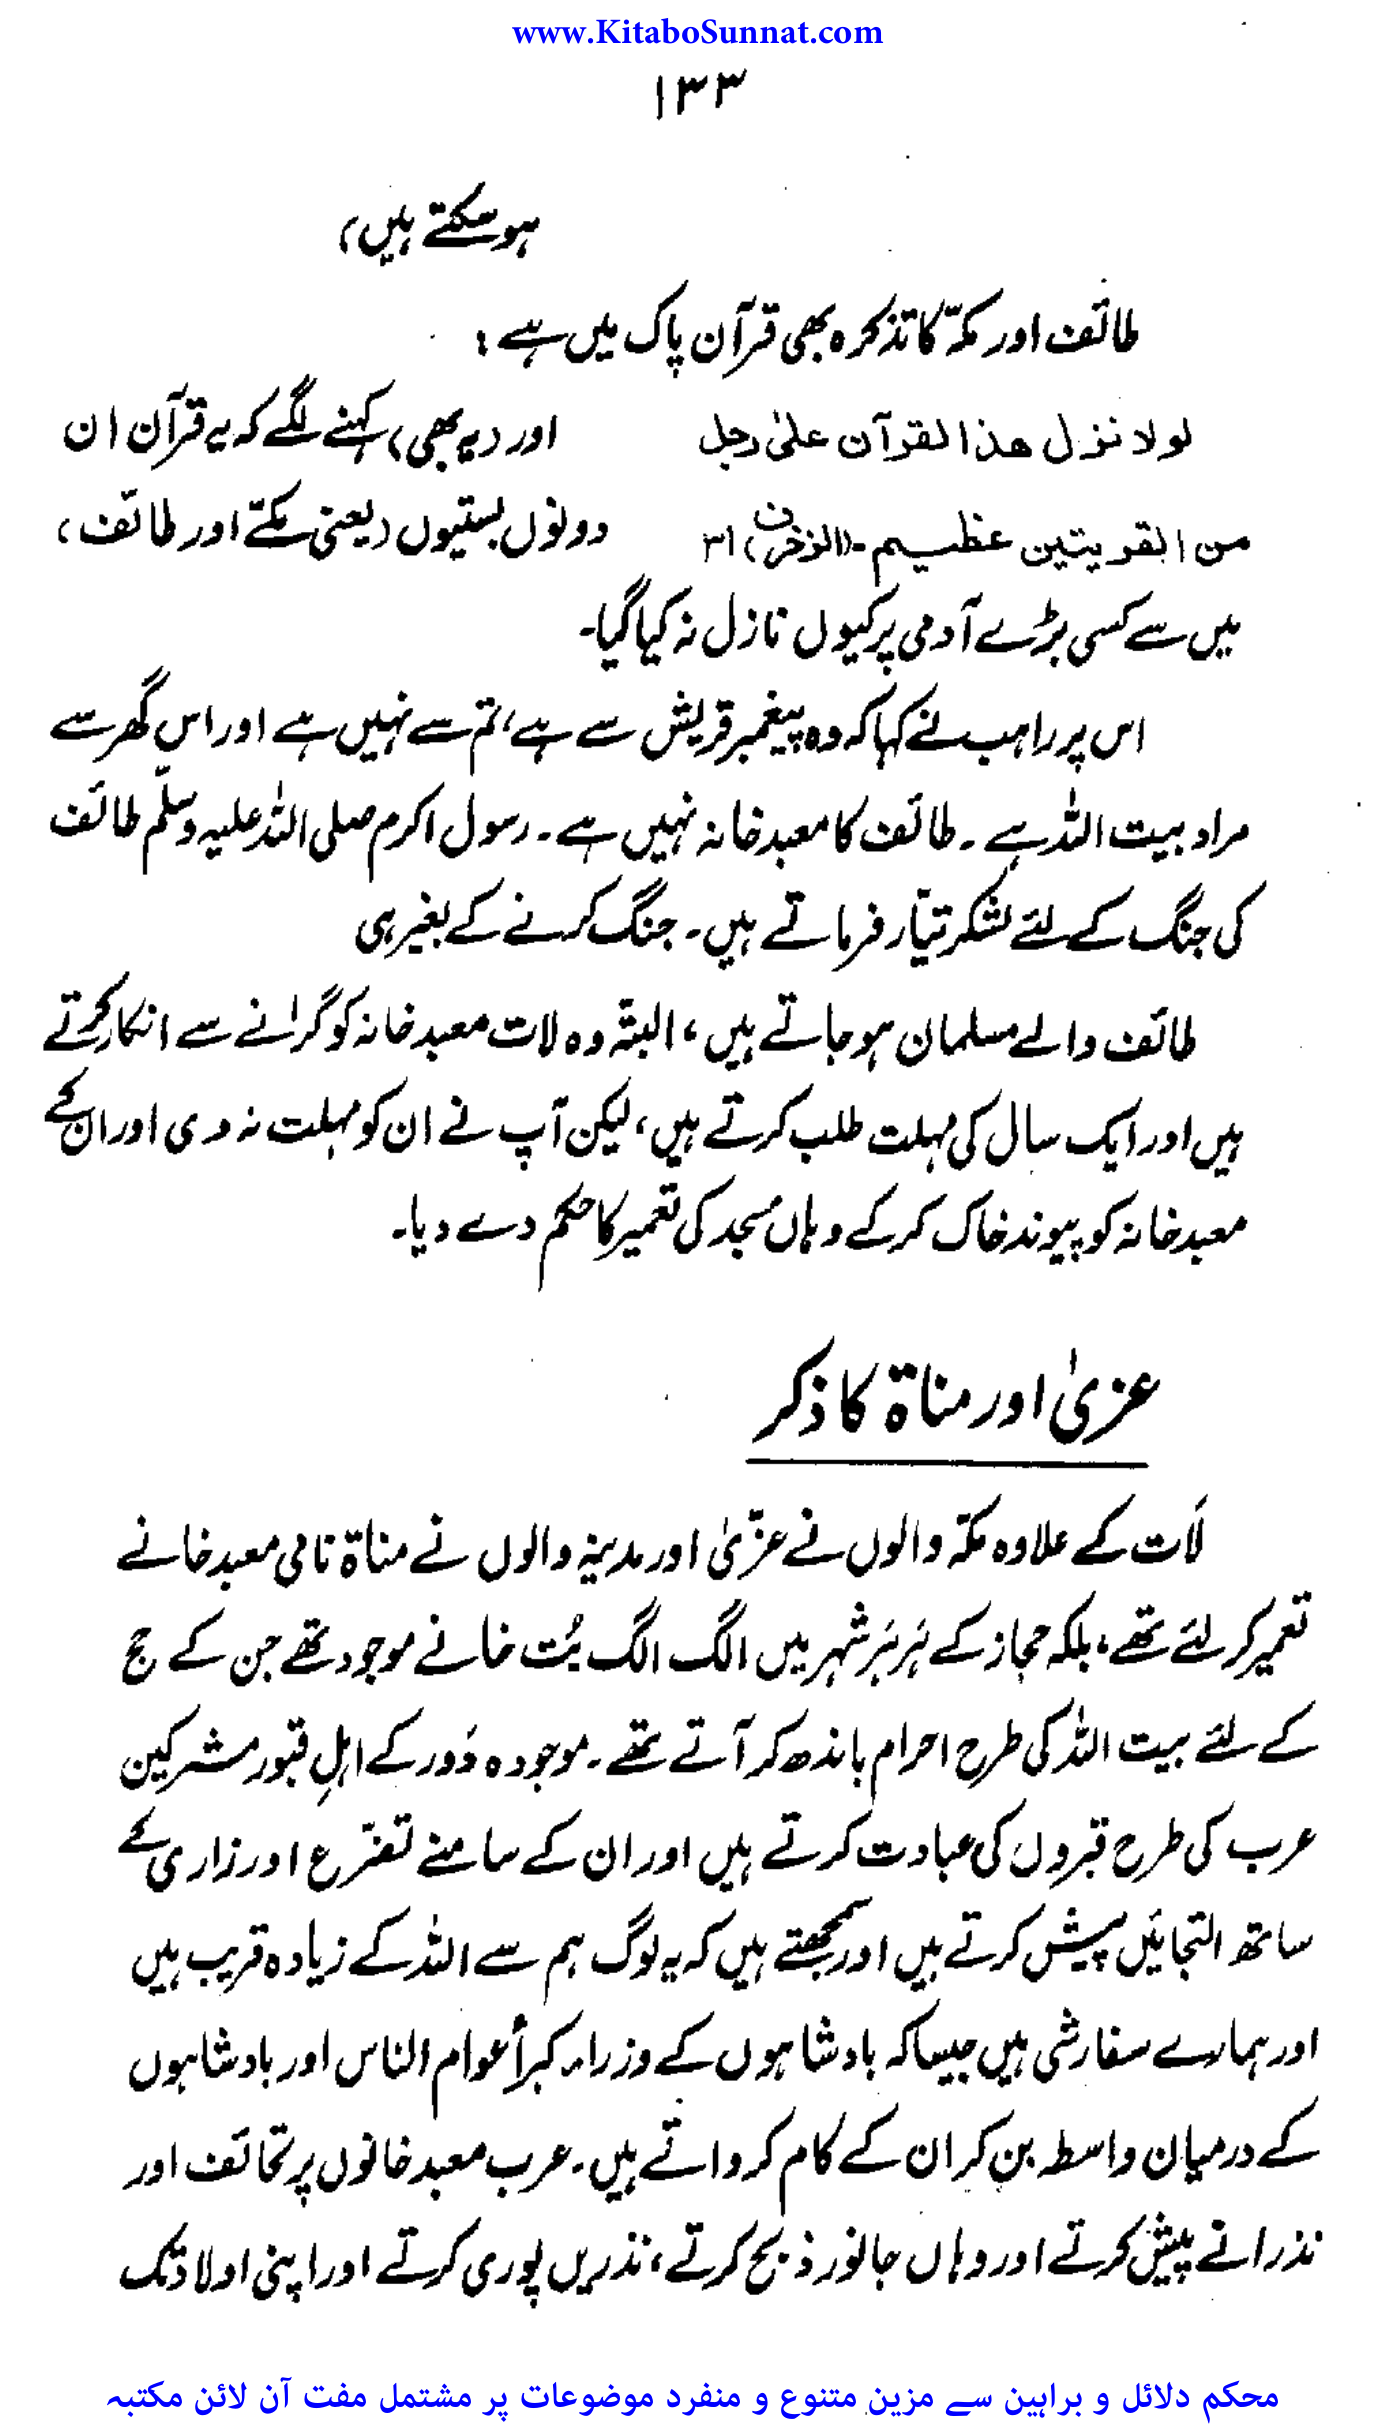 www.KitaboSunnat.com
۱۳۳
ہو سکتے ہیں)
طائف اور مکّہ کا تذکرہ بھی قرآن پاک میں ہے :
لولا نزل ھذا القرآن علیٰ رجل
من القریتین عظیم۔ (الزخرف) ۳۱
اور (یہ بھی) کہنے لگے کہ یہ قرآن ان
دونوں بستیوں (یعنی مکّے اور طائف)
میں سے کسی بڑے آدمی پر کیوں نازل نہ کیا گیا۔
اس پر راہب نے کہا کہ وہ پیغمبر قریش سے ہے، تم سے نہیں ہے اور اس گھر سے
مراد بیت اللہ ہے ۔ طائف کا معبد خانہ نہیں ہے ۔ رسول اکرم صلی اللہ علیہ وسلّم طائف
کی جنگ کے لئے لشکر تیّار فرماتے ہیں ۔ جنگ کرنے کے بغیر ہی
طائف والے مسلمان ہو جاتے ہیں ، البتّہ وہ لات معبد خانہ کو گرانے سے انکار کرتے
ہیں اور ایک سال کی مہلت طلب کرتے ہیں، لیکن آپ نے ان کو مہلت نہ دی اور ان کے
معبد خانہ کو پیوند خاک کر کے وہاں مسجد کی تعمیر کا حکم دے دیا۔
عزیٰ اور مناة کا ذکر
لَات کے علاوہ مکّہ والوں نے عزّیٰ اور مدینہ والوں نے مناة نامی معبد خانے
تعمیر کر لئے تھے، بلکہ حجاز کے ہَر ہَر شہر میں الگ الگ بُت خانے موجود تھے جن کے حج
کے لئے بیت اللہ کی طرح احرام باندھ کر آتے تھے ۔ موجودہ دَور کے اہلِ قبور مشرکین
عرب کی طرح قبروں کی عبادت کرتے ہیں اور ان کے سامنے تضرّع اور زاری کے
ساتھ التجائیں پیش کرتے ہیں اور سمجھتے ہیں کہ یہ لوگ ہم سے اللہ کے زیادہ قریب ہیں
اور ہمارے سفارشی ہیں جیسا کہ بادشاہوں کے وزراء کبرأ عوام الناس اور بادشاہوں
کے درمیان واسطہ بن کر ان کے کام کرواتے ہیں ۔ عرب معبد خانوں پر تحائف اور
نذرانے پیش کرتے اور وہاں جانور ذبح کرتے ، نذریں پوری کرتے اور اپنی اولاد تک
محکم دلائل و براہین سے مزین متنوع و منفرد موضوعات پر مشتمل مفت آن لائن مکتبہ